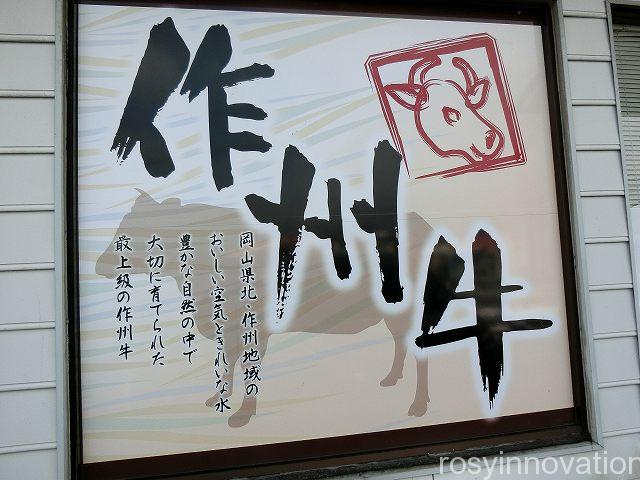 作州牛
岡山県北・作州地域の
おいしい空気ときれいな水
豊かな自然の中で
大切に育てられた
最上級の作州牛
rosyinnovation